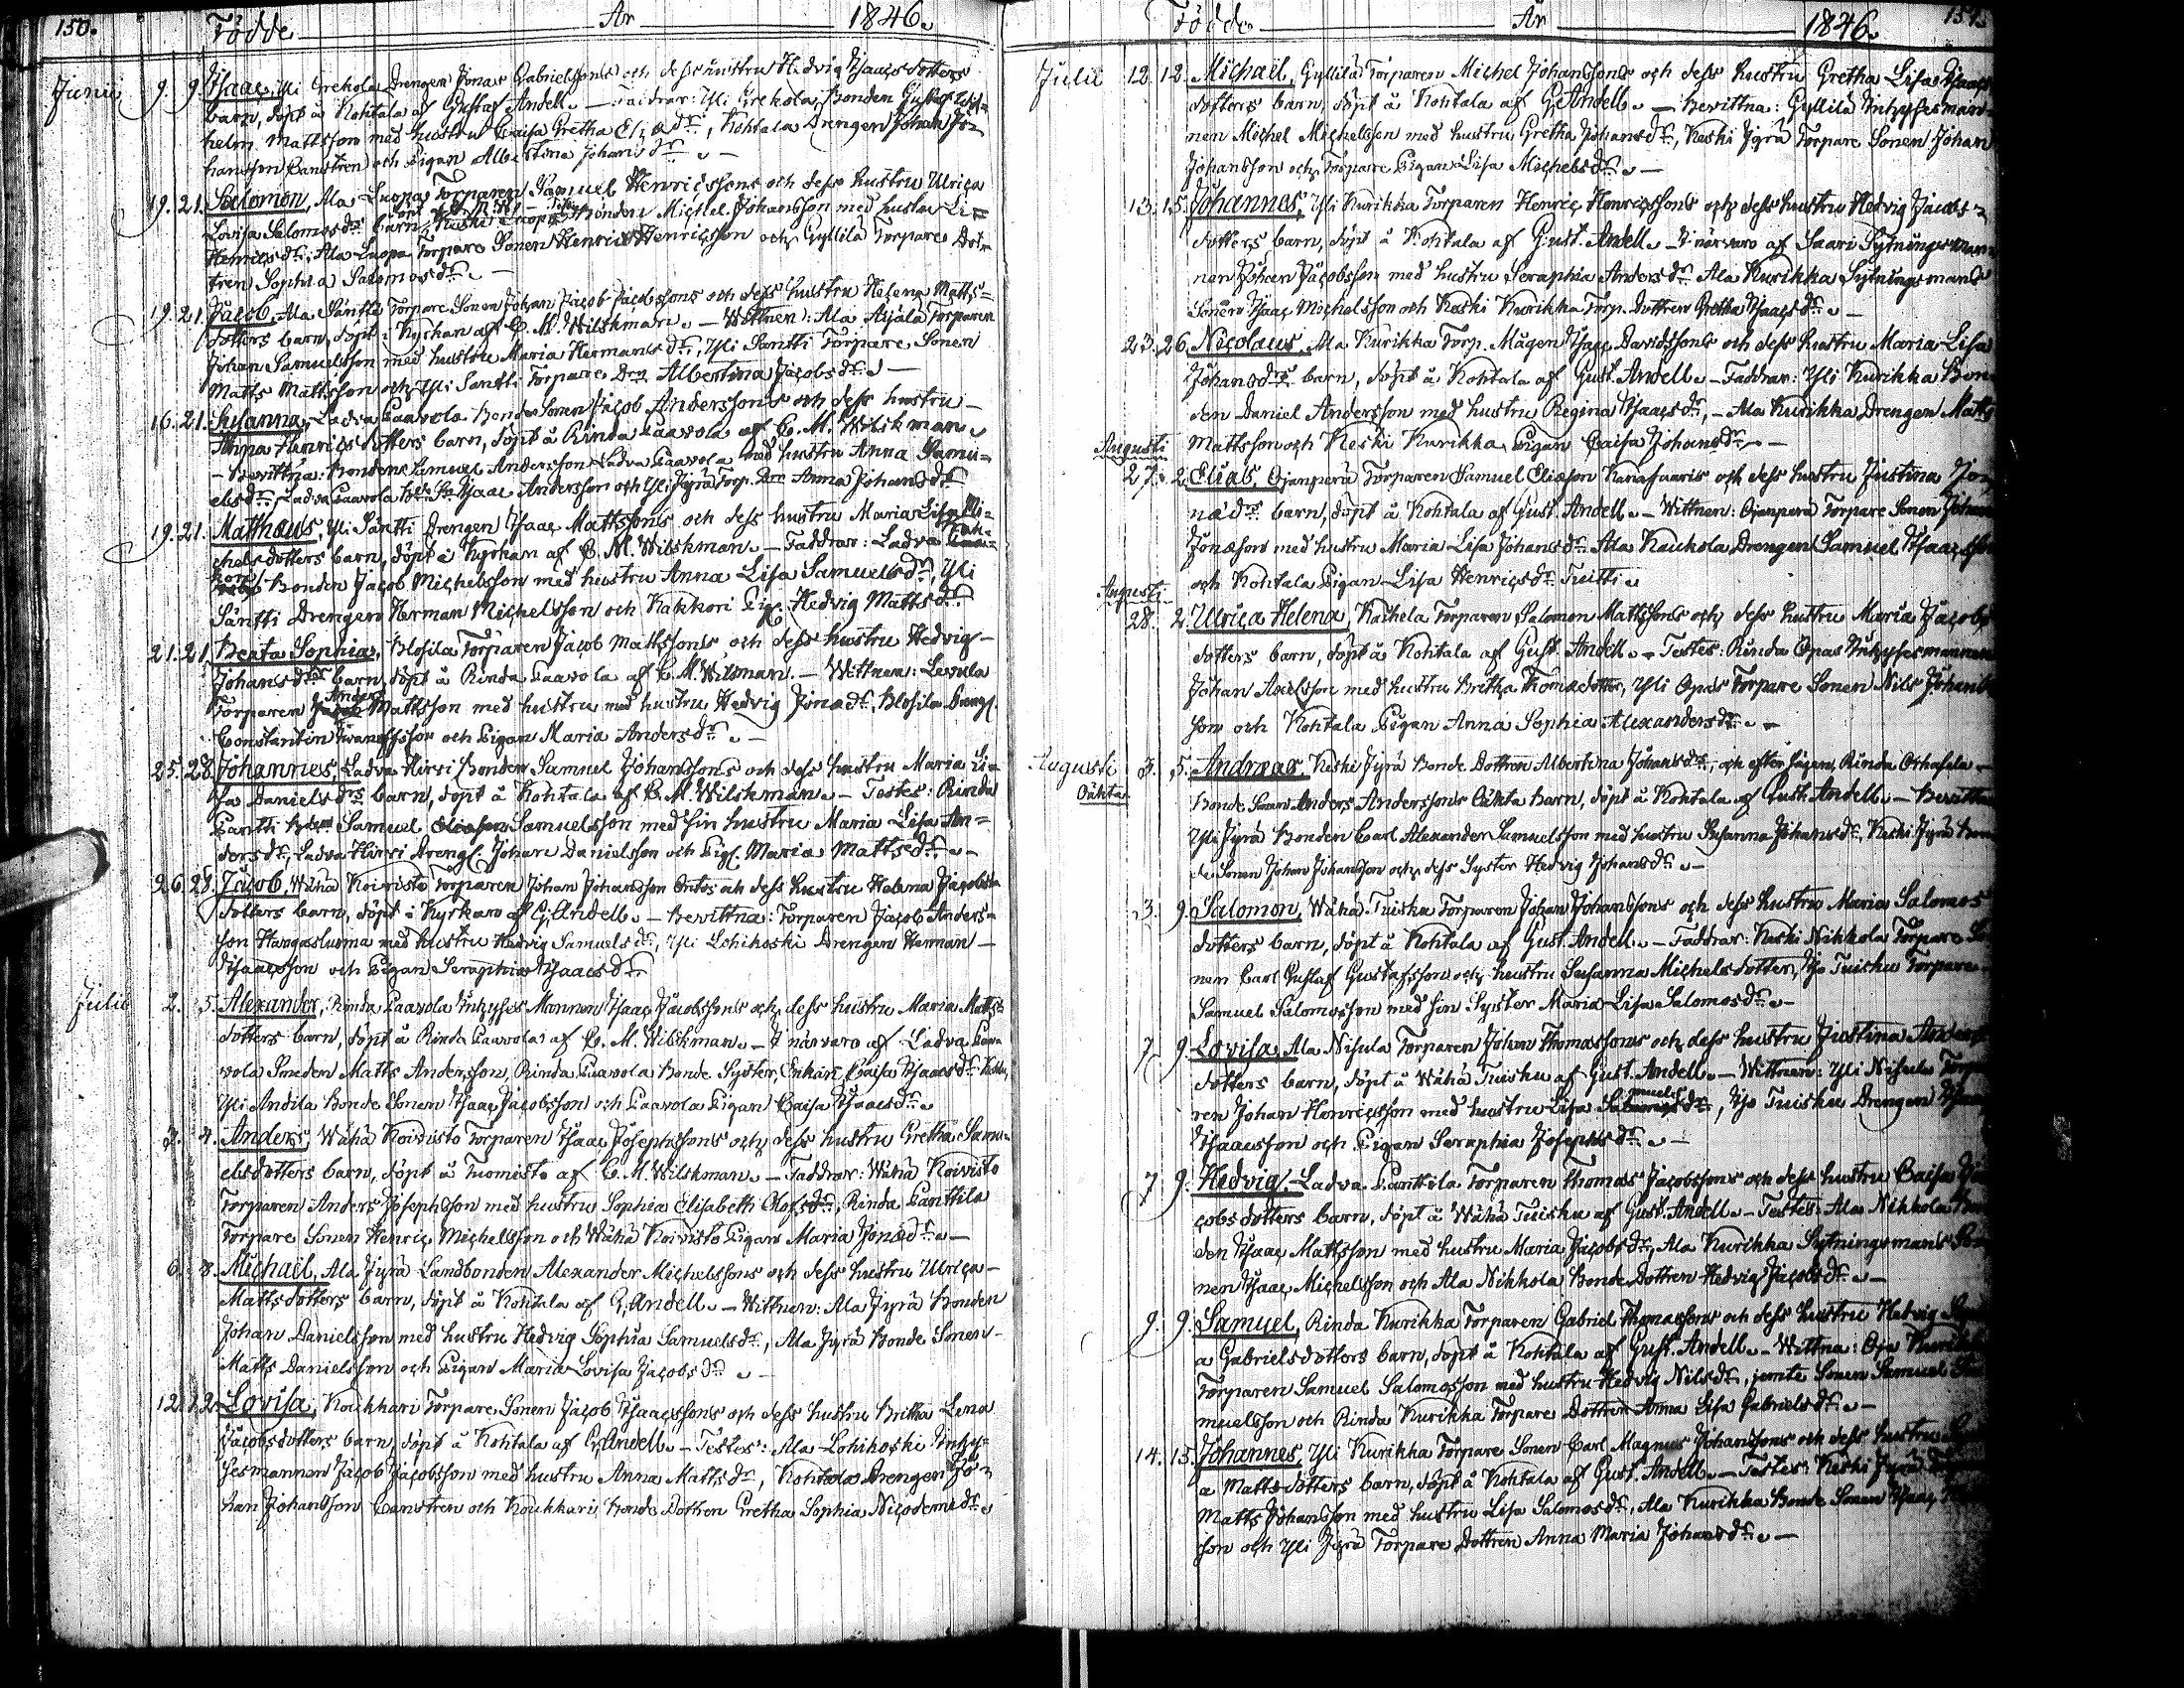 150. Födde År 1846.
Junii 9. 9. Isaac, Yli Grekola Drengen Jonas Gabrielssons och dess hustru Hedvig Isaacsdotters
barn, döpt å Kohtala af Gustaf Andell. — Faddrar: Yli Grekola Bonden Gustaf Wil-
helm Mattsson med hustru Caisa Gretha dr, Kohtala Drengen Johan Jo-
hansson Canstrén och Pigan Albertina Johansdr. —
19. 21. Salomon, Ala-Luopa Torparen Samuel Henricssons och dess hustru Ulrica
Lovisa Salomosdrs barn, Bonden Michel Johansson med hustru Li-
Henricsdr, Ala-Luopa Torpare Sonen Henric Henricsson och Gyllilä Torpare Dot-
tren Sophia Salomosdr. —
19. 21. Jacob, Ala Säntti Torpare Sonen Johan Jacob Jacobssons och dess hustru Helena Matts-
dotters barn, döpt i Kyrkan af C. M. Wilskman. — Wittnen: Ala Äijälä Torparen
Johan Samuelsson med hustru Maria Hermansdr, Yli Säntti Torpare Sonen
Matts Mattsson och Yli Säntti Torpare Drn Albertina Jacobsdr. —
16. 21. Susanna, Ladva Paavola Bonde Sonen Jacob Anderssons och dess hustru
Anna Henricsdotters barn, döpt å Rinda Paavola af C. M. Wilskman.
— Bevittna: Bonden Samuel Andersson Ladva Paavola med hustru Anna Samu-
elsdr, Ladva Paavola Isaac Andersson och Yli Jyrä Torp. Drn Anna Johansdr
19. 21. Matthæus, Yli Säntti Drengen Isaac Mattssons och dess hustru Maria Lisa Mi-
chelsdotters barn, döpt i Kyrkan af C. M. Wilskman. — Faddrar: Ladva
Bonden Jacob Michelsson med hustru Anna Lisa Samuelsdr, Yli
Säntti Drengen Herman Michelsson och Kakkori Pig. Hedvig Mattsdr
21. 21. Beata Sophia, Blofila Torparen Jacob Mattssons och dess hustru Hedvig
Johansdrs barn, döpt å Rinda Paavola af C. M. Wilsman. — Wittnen: Levula
Torparen Anders Mattsson med hustru med hustru Hedvig Jonædr, Blofila Dreng.
Constantin och Pigan Maria Andersdr. —
25. 28. Johannes, Ladva Hirvi Bonden Samuel Johanssons och dess hustru Maria Li-
sa Danielsdrs barn, döpt å Kohtala af C. M. Wilskman. — Testes: Rinda
Pantti Bden Samuel Samuelsson med sin hustru Maria Lisa An-
dersdr, Ladva Hirvi Dreng. Johan Danielsson och Pig. Maria Mattsdr. —
26. 28. Jacob, Wähä Koivisto Torparen Johan Johansson Ontos och dess hustru Helena Jacobs
dotters barn, döpt i Kyrkan af G. Andell. — Bevittna: Torparen Jacob Anders-
son Hangasluoma med hustru Hedvig Samuelsdr, Yli Lohikoski Drengen Herman
Isaacsson och Pigan Seraphia Isaacsdr
Julii 2. 5. Alexander, Rinda Paavola Inhyses Mannen Isaac Jacobssons och dess hustru Maria Matts-
dotters barn, döpt å Rinda Paavola af C. M. Wilskman. — I närvaro af Ladva Paa-
vola Smeden Matts Andersson, Rinda Paavola Bonde Syster, Enkan Caisa Isaacsdr
Yli Andila Bonde Sonen Isaac Jacobsson och Paavola Pigan Caisa Isaacsdr.
3. 4. Anders, Wähä Koivisto Torparen Isaac Josephssons och dess hustru Gretha Samu-
elsdotters barn, döpt å Tuomisto af C. M. Wilskman. — Faddrar: Wähä Koivisto
Torparen Anders Josephsson med hustru Sophia Elisabeth Olofsdr, Rinda Panttila
Torpare Sonen Henric Michelsson och Wähä Koivisto Pigan Maria Jonædr. —
6. 8. Michaël, Ala Jyrä Landbonden Alexander Michelssons och dess hustru Ulrica
Mattsdotters barn, döpt å Kohtala af G. Andell. — Wittnen: Ala Jyrä Bonden
Johan Danielsson med hustru Hedvig Sophia Samuelsdr, Ala Jyrä Bonde Sonen
Matts Danielsson och Pigan Maria Lovisa Jacobsdr. —
12. 12. Lovisa, Koukkari Torpare Sonen Jacob Isaacssons och dess hustru Britha Lena
Jacobsdotters barn, döpt å Kohtala af G. Andell. — Testes: Ala-Lohikoski Inhy-
sesmannen Jacob Jacobsson med hustru Anna Mattsdr, Kohtala Drengen Jo-
han Johansson Canstrén och Koukkari Bonde Dottren Gretha Sophia Nicodemidr.
Födde År 1846. 151.
Julii 12. 12. Michaël, Gyllilä Torparen Michel Johanssons och dess hustru Gretha Lisa Isaacs
dotters barn, döpt å Kohtala af G. Andell. — Bevittna: Gyllilä Inhysesman-
nen Michel Michelsson med hustru Gretha Johansdr, Keski Jyrä Torpare Sonen Johan
Johansson och Torpare Pigan Lisa Michelsdr. —
13. 15. Johannes, Yli Kurikka Torparen Henric Henricssons och dess hustru Hedvig Jacobs-
dotters barn, döpt å Kohtala af Gust. Andell. — I närvaro af Saari Sytningsman-
nen Johan Jacobsson med hustru Seraphia Andersdr, Ala Kurikka Sytningsmans
Sonen Isaac Michelsson och Keski Kurikka Torp. Dottren Gretha Isaacsdr. —
23. 26. Nicolaus, Ala Kurikka Torp. Mågen Isaac Davidssons och dess hustru Maria Lisa
Johansdrs barn, döpt å Kohtala af Gust. Andell. — Faddrar: Yli Kurikka Bon-
den Daniel Andersson med hustru Regina Isaacsdr, — Ala Kurikka Drengen Matts
Mattsson och Keski Kurikka Pigan Caisa Johansdr. —
Augusti
27. 2. Eliab, Ojanperä Torparen Samuel Eliæson Kanasaaris och dess hustru Justina Jo-
nædrs barn, döpt å Kohtala af Gust. Andell. — Wittnen: Ojanperä Torpare Sonen Johan
Jonæson med hustru Maria Lisa Johansdr, Ala Kaukola Drengen Samuel Isaacsson
och Kohtala Pigan Lisa Henricsdr Tuitti.
Augusti
28. 2. Ulrica Helena, Kachela Torparen Salomon Mattssons och dess hustru Maria Jacobs
dotters barn, döpt å Kohtala af Gust. Andell. — Testes: Rinda Opas Inhysesmannen
Johan Axelsson med hustru Britha Thomædotter, Yli Opas Torpare Sonen Nils Johans
son och Kohtala Pigan Anna Sophia Alexandersdr. —
Augusti 3. 5. Andreas, Keski Jyrä Bonde Dottren Albertina Johansdr, och efter sägen, Rinda
Oäkta Bonde Sonen Anders Anderssons Oäkta Barn, döpt å Kohtala af Gust. Andell. — Bevittna
Yli Jyrä Bonden Carl Alexander Samuelsson med hustru Susanna Johansdr, Keski Jyrä Bon
de Sonen Johan Johansson och dess Syster Hedvig Johansdr. —
3. 9. Salomon, Wähä Tuisku Torparen Johan Johanssons och dess hustru Maria Salomos
dotters barn, döpt å Kohtala af Gust. Andell. — Faddrar: Keski Nikkola Torpare So-
nen Carl Gustaf Gustafsson och hustru Susanna Michelsdotter, Iso Tuisku Torpare
Samuel Salomosson med sin Syster Maria Lisa Salomosdr. —
7. 9. Lovisa, Ala Nisula Torparen Johan Thomassons och dess hustru Justina Anders
dotters barn, döpt å Wähä Tuisku af Gust. Andell. — Wittnen: Yli Nisula Torpa
ren Johan Henricsson med hustru Lisa Samuelsdr, Iso Tuisku Drengen Isaac
Isaacsson och Pigan Seraphia Josephsdr. —
7. 9. Hedvig, Ladva Panttila Torparen Thomas Jacobssons och dess hustru Caisa Ja
cobsdotters barn, döpt å Wähä Tuisku af Gust. Andell. — Testes: Ala Nikkola Bon
den Isaac Mattsson med hustru Maria Jacobsdr, Ala Kurikka Sytningsmans So
nen Isaac Michelsson och Ala Nikkola Bonde Dottren Hedvig Jacobsdr. —
9. 9. Samuel, Rinda Kurikka Torparen Gabriel Thomassons och dess hustru Hedvig
a Gabrielsdotters barn, döpt å Kohtala af Gust. Andell. — Wittna: Oja Kurikka
Torparen Samuel Salomosson med hustru Hedvig Nilsdr, jemte Sonen Samuel Sa
muelsson och Rinda Kurikka Torpare Dottren Anna Lisa Gabrielsdr. —
14. 15. Johannes, Yli Kurikka Torpare Sonen Carl Magnus Johanssons och dess hustru
a Mattsdotters barn, döpt å Kohtala af Gust. Andell. — Testes: Keski Jyrä
Matts Johansson med hustru Lisa Salomosdr, Ala Kurikka Bonde Sonen Isaac
son och Yli Jyrä Torpare Dottren Anna Maria Johansdr. —